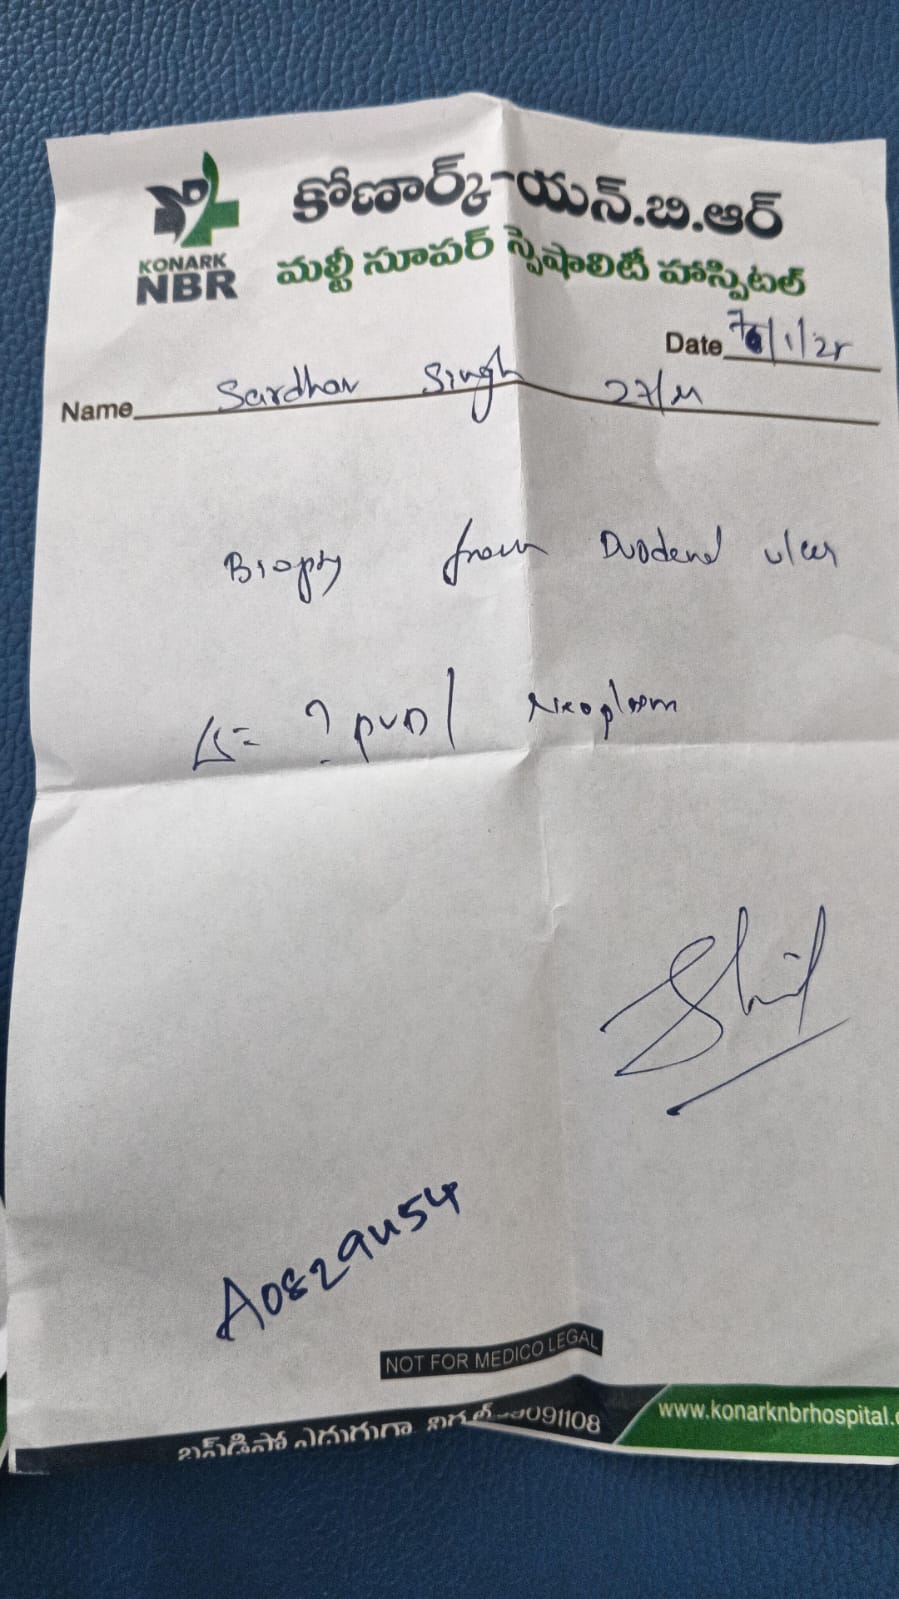 కోణార్క్-యన్.బి.ఆర్
KONARK
NBR
మల్టీ సూపర్ స్పెషాలిటీ హాస్పిటల్
Date 7/1/25
Name Sardhar Singh 27/M
Biopsy from Duodenal ulcer
? PUD / Neoplasm
A0829454
NOT FOR MEDICO LEGAL
ఎదురుగా
091108
www.konarknbrhospital.